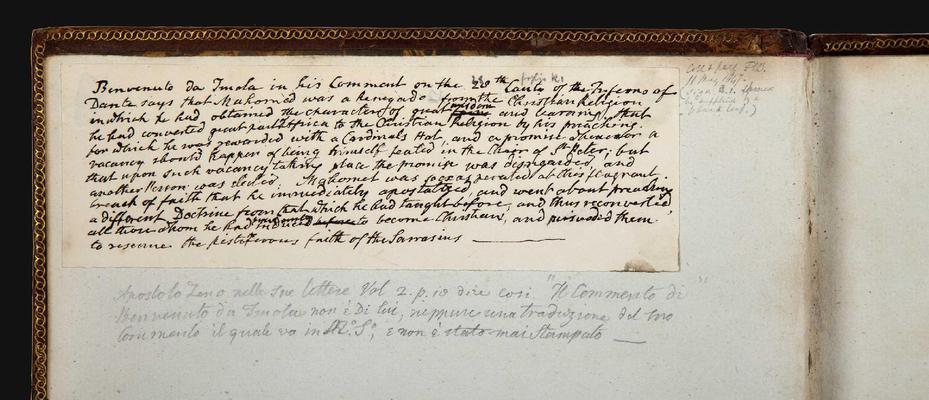 Benvenuto da Imola in his Comment on the 28th Canto of the Inferno of
Dante says that Mahomed was a renegade from the Christian Religion
in which he had obtained the character of great wisdom and learning, that
he had converted great part Africa to the Christian Religion by his preaching.
for which he was rewarded with a Cardinals Hat, and a promise whenever a
vacancy should happen of being himself seated in the Chair of St Peter; but
that upon such vacancy taking place the promise was disregarded, and
another Person was elected. Mahomet was so exasperated at this flagrant
breach of faith that he immediately apostatized, and went about preaching
a different Doctrine from that which he had taught before, and thus reconverted
all those whom he had to become Christians, and persuaded them
to resume the pestiferous faith of the Sarrasins
Apostolo Zeno nelle sue lettere Vol 2. p. 10 dice cosi, "Il Commento di
Benvenuto da Imola non è di lui, neppure una traduzione del suo
Commento il quale va in M.S., e non è stato mai stampato
Coll & perf. F.W.B.
11 May
sign B.1.